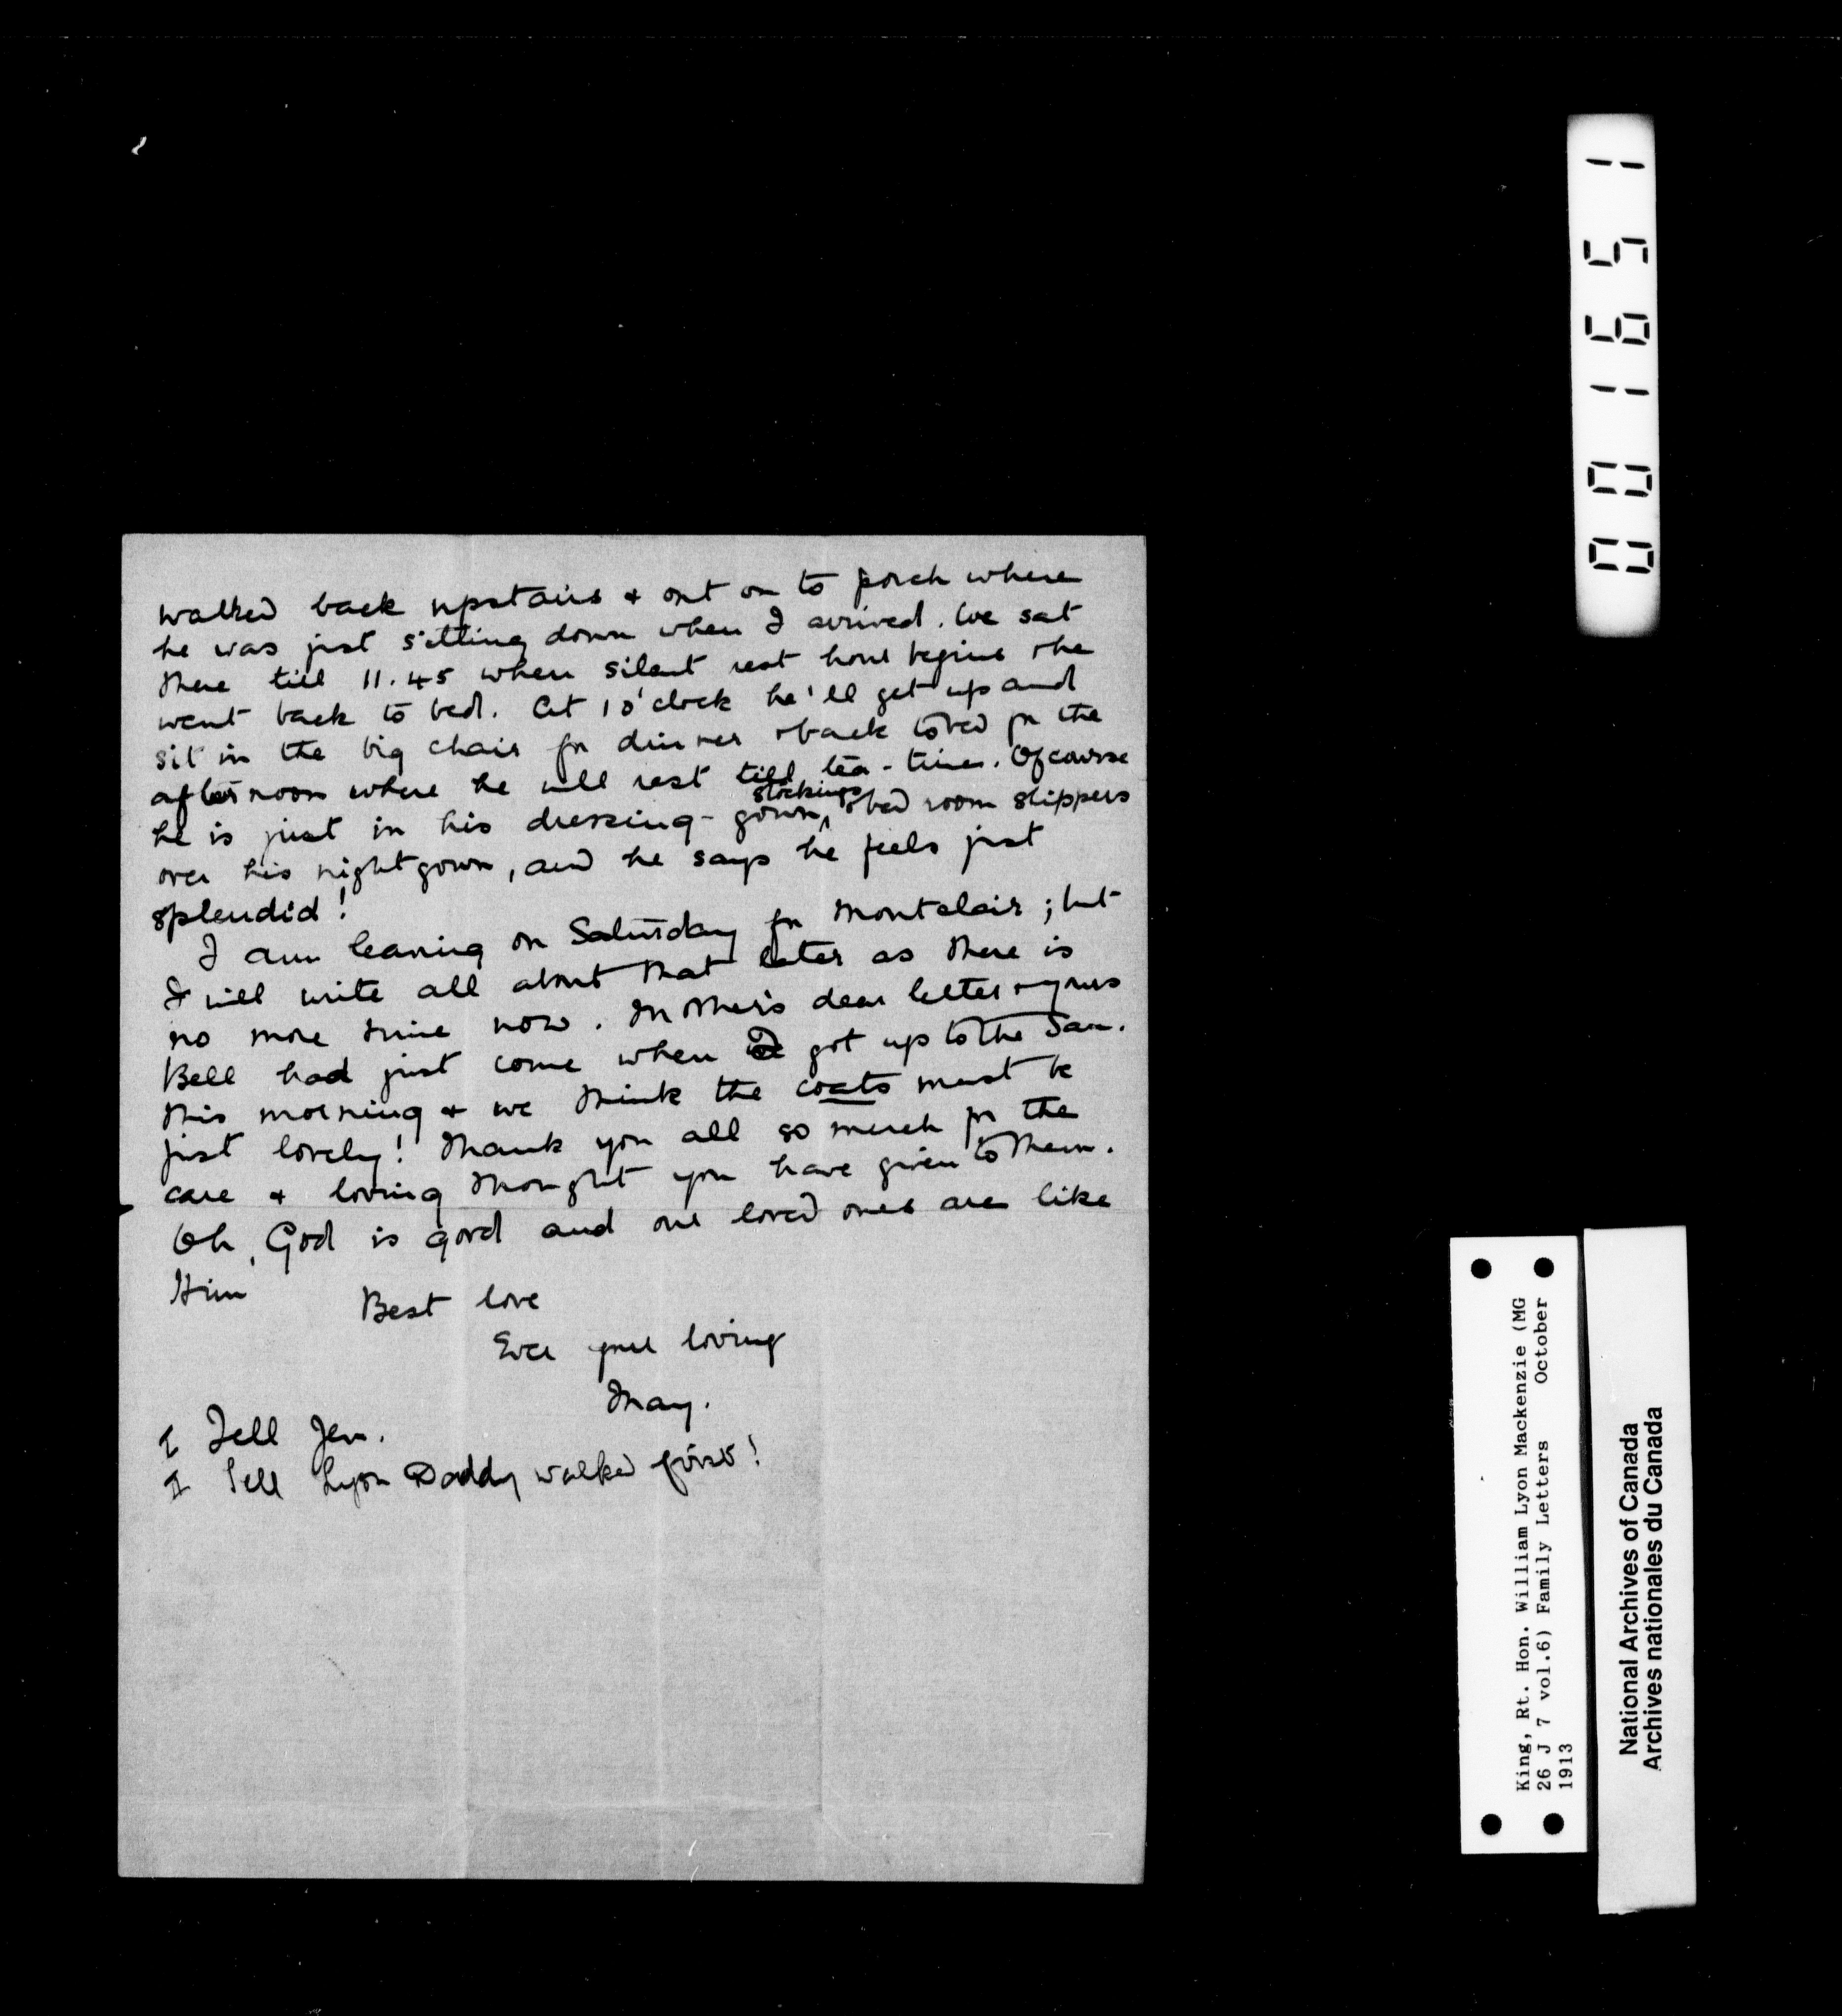 walked back upstairs & out on to porch where
he was just sitting down when I arrived. We sat
there till 11.45 when silent rest hour begins & he
went back to bed. At 1 o'clock he'll get up and
sit in the big chair for dinner & back to bed for the
afternoon where he will rest till tea-time. Of course
he is just in his dressing-gown, stockings & bed room slippers
over his nightgown, and he says he feels just
splendid!
I am leaving on Saturday for Montclair; but
I will write all about that later as there is
no more time now. Mother's dear letter & yours
Bell had just come when I got up to the San.
this morning & we think the coats must be
just lovely! Thank you all so much for the
care & loving thought you have given to them.
Oh, God is good and our loved ones are like
Him
Best love
Ever your loving
May.
I Tell Jen.
I Tell Lyon Daddy walked first!
001651
King, Rt. Hon. William Lyon Mackenzie (MG
26 J 7 vol.6) Family Letters October
1913
National Archives of Canada
Archives nationales du Canada